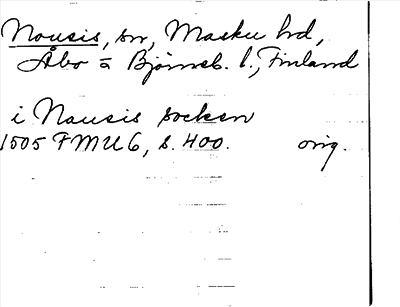 Nousis, sn, Masku hd,
Åbo o Björneb. l., Finland
i Nousis socken
1505 FMU 6, s. 400. orig.